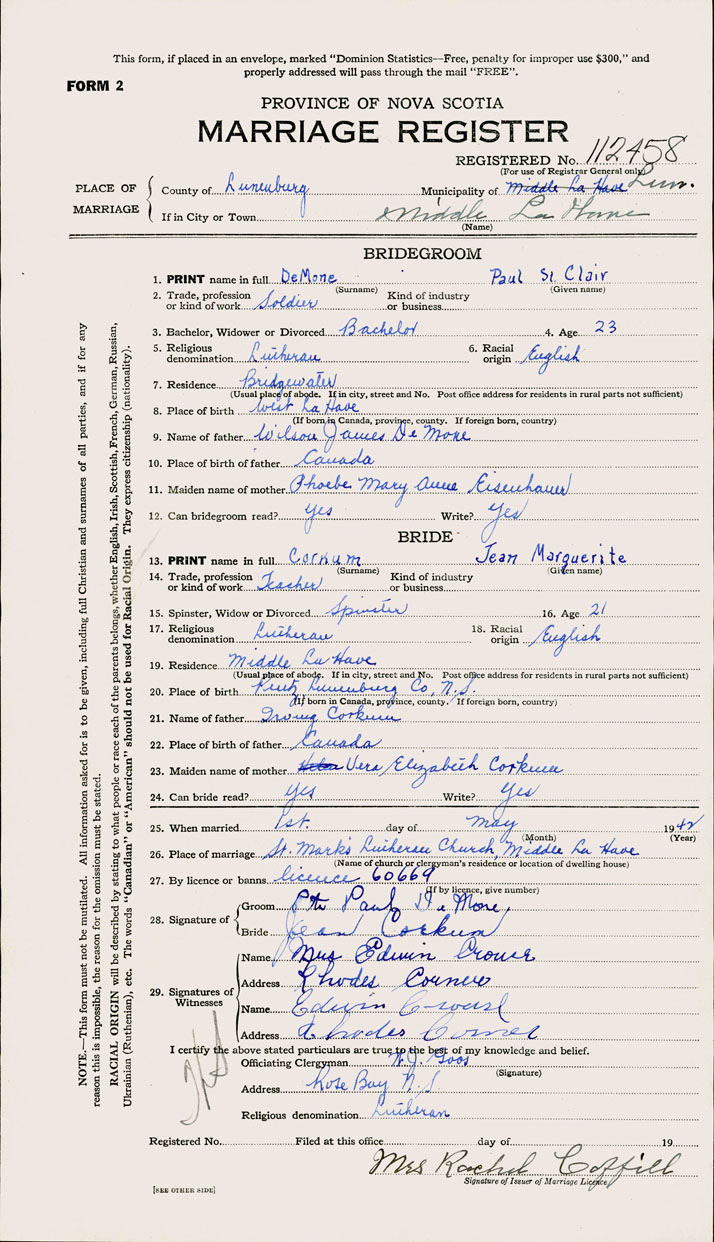 This form, if placed in an envelope, marked "Dominion Statistics—Free, penalty for improper use $300," and
properly addressed will pass through the mail "FREE".
FORM 2
PROVINCE OF NOVA SCOTIA
MARRIAGE REGISTER
REGISTERED No. 112458
(For use of Registrar General only)
PLACE OF MARRIAGE
County of Lunenburg Municipality of Middle La Have Lun.
If in City or Town Middle La Have
(Name)
BRIDEGROOM
1. PRINT name in full DeMone Paul St. Clair
(Surname) (Given name)
2. Trade, profession or kind of work Soldier Kind of industry or business
3. Bachelor, Widower or Divorced Bachelor 4. Age 23
5. Religious denomination Lutheran 6. Racial origin English
7. Residence Bridgewater
(Usual place of abode. If in city, street and No. Post office address for residents in rural parts not sufficient)
8. Place of birth West La Have
(If born in Canada, province, county. If foreign born, country)
9. Name of father Wilson James De Mone
10. Place of birth of father Canada
11. Maiden name of mother Phoebe Mary Anne Eisenhauer
12. Can bridegroom read? Yes Write? Yes
BRIDE
13. PRINT name in full Corkum Jean Marguerite
(Surname) (Given name)
14. Trade, profession or kind of work Teacher Kind of industry or business
15. Spinster, Widow or Divorced Spinster 16. Age 21
17. Religious denomination Lutheran 18. Racial origin English
19. Residence Middle La Have
(Usual place of abode. If in city, street and No. Post office address for residents in rural parts not sufficient)
20. Place of birth Lunenburg Co, N.S.
(If born in Canada, province, county. If foreign born, country)
21. Name of father Irving Corkum
22. Place of birth of father Canada
23. Maiden name of mother Vera Elizabeth Corkum
24. Can bride read? Yes Write? Yes
25. When married 1st. day of May 1942
(Month) (Year)
26. Place of marriage St. Mark's Lutheran Church, Middle La Have
(Name of church or clergyman's residence or location of dwelling house)
27. By licence or banns licence 60669
(If by licence, give number)
28. Signature of
Groom Pte Paul De Mone,
Bride Jean Corkum
29. Signatures of Witnesses
Name Mrs Edwin Crouse
Address Rhodes Corner
Name Edwin Crouse
Address Rhodes Corner
I certify the above stated particulars are true to the best of my knowledge and belief.
Officiating Clergyman
(Signature)
Address Rose Bay N.S
Religious denomination Lutheran
Registered No. Filed at this office day of 19
Mrs Rachel Coffill
Signature of Issuer of Marriage Licence
[SEE OTHER SIDE]
NOTE.—This form must not be mutilated. All information asked for is to be given, including full Christian and surnames of all parties, and if for any
reason this is impossible, the reason for the omission must be stated.
RACIAL ORIGIN will be described by stating to what people or race each of the parents belongs, whether English, Irish, Scottish, French, German, Russian,
Ukrainian (Ruthenian), etc. The words "Canadian" or "American" should not be used for Racial Origin. They express citizenship (nationality).